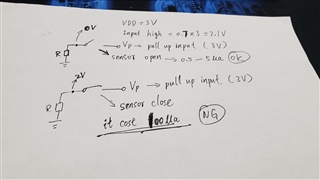 VDD = 3V
0V
Input high = 0.7 × 3 = 2.1V
R
Vp → pull up input (3V)
sensor open → 0.5 - 5ua OK
2V
R
Vp → pull up input (3V)
sensor close
it cost 100ua
NG